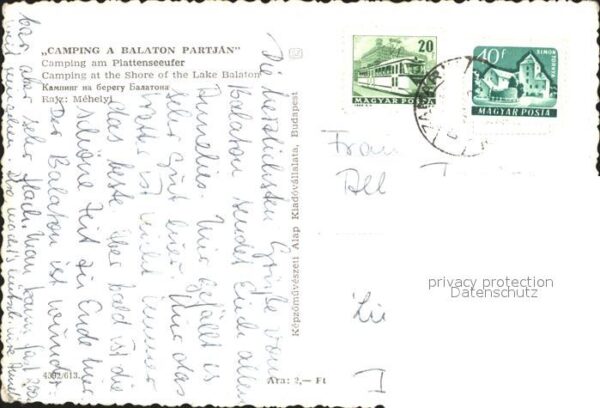 „CAMPING A BALATON PARTJÁN”
Camping am Plattenseeufer
Camping at the Shore of the Lake Balaton
Кампинг на берегу Балатона
Rajz: Méhelyi
Die herzlichsten Grüße vom
Balaton sendet Euch allen
Annelies. Mir gefällt es
sehr gut hier. Nur das
Wetter ist nicht immer
das beste. Aber bald ist die
schöne Zeit zu Ende hier
Der Balaton ist wunder-
bar aber sehr flach. Man kann fast 200
Képzőművészeti Alap Kiadóvállalata, Budapest
4302/613.
Ára: 2,— Ft
20
MAGYAR POSTA
40f
SIMON TORNYA
MAGYAR POSTA
Frau
privacy protection
Datenschutz